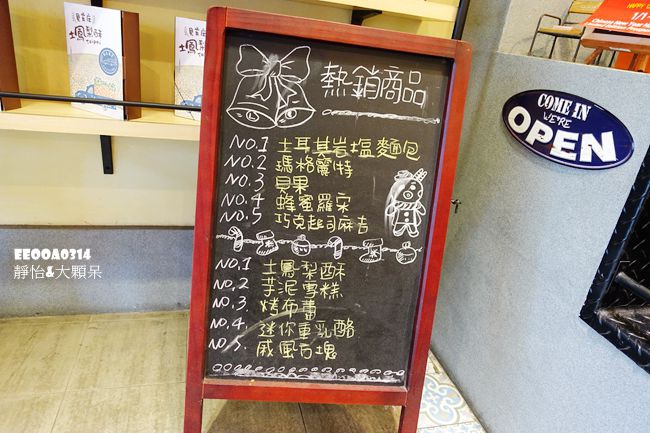 土鳳梨酥
土鳳梨酥
熱銷商品
NO.1 土耳其岩塩麵包
NO.2 瑪格麗特
NO.3 貝果
NO.4 蜂蜜羅宋
NO.5 巧克起司麻吉
NO.1 土鳳梨酥
NO.2 芋泥雪糕
NO.3. 烤布蕾
NO.4. 迷你重乳酪
NO.5. 戚風方塊
COME IN
WE'RE
OPEN
1/1
EEOOA0314
靜怡&大顆呆